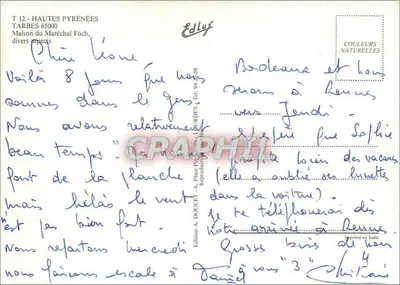 T 12 - HAUTES PYRÉNÉES
TARBES 65000
Maison du Maréchal Foch,
divers aspects
Edlux
COULEURS
NATURELLES
Chère
Voilà 8 jours que nous
sommes dans le Gers
Nous avons relativement
beau temps
font de la planche
mais hélas le vent
n'est pas bien fort.
Nous repartons mercredi
nous faisons escale à
Bordeaux et nous
serons à Rennes
vers Jeudi
J'espère que Sophie
profite bien des vacances
(elle a oublié ses lunettes
dans la voiture).
Je te téléphonerai dès
notre arrivée à Rennes.
Grosses bises de nous 4
à vous "3"
CPAPHIL
Edition A. DOUCET